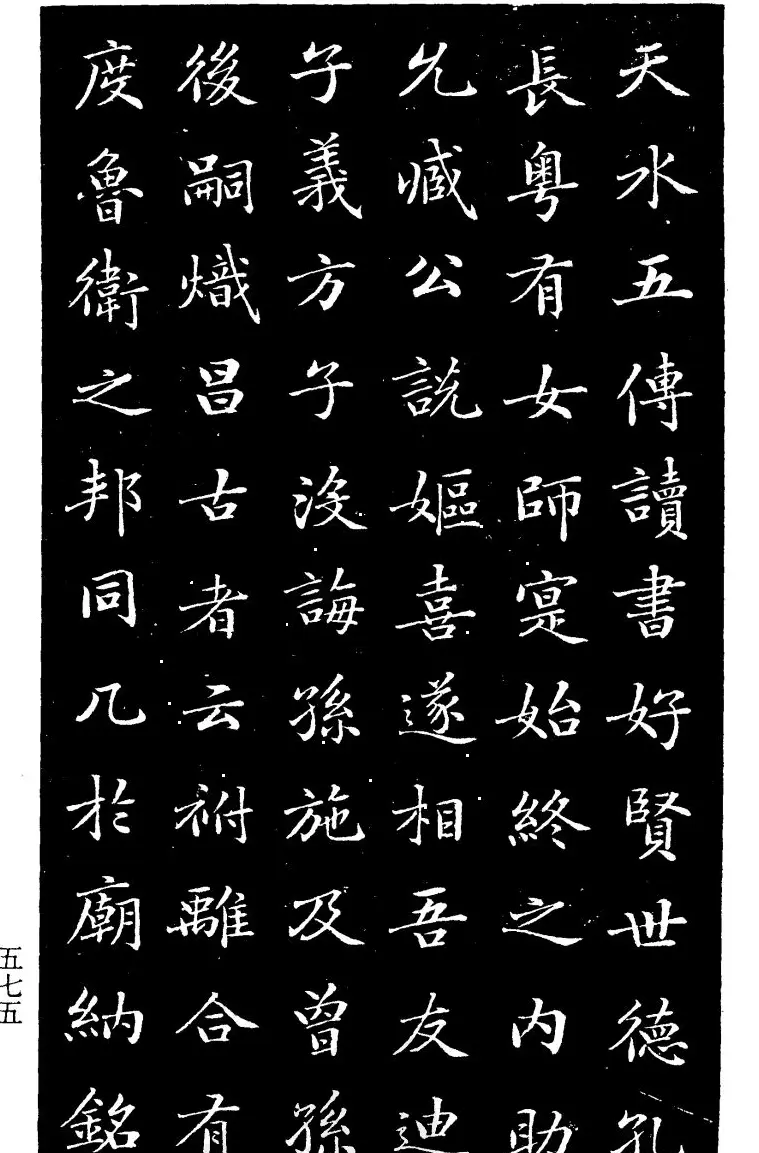 天水五傳讀書好賢世德孔
長粵有女師寔始終之内助
允臧公說嫗喜遂相吾友迪
子義方子沒誨孫施及曾孫
後嗣熾昌古者云祔離合有
度魯衛之邦同几於廟納銘
五七五